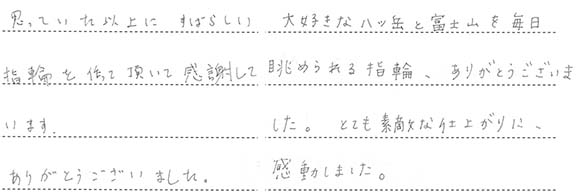 思っていた以上に すばらしい
指輪を作って頂いて感謝して
います.
ありがとうございました。
大好きな八ヶ岳と富士山を毎日
眺められる指輪、ありがとうございま
した。 とても素敵な仕上がりに、
感動しました。